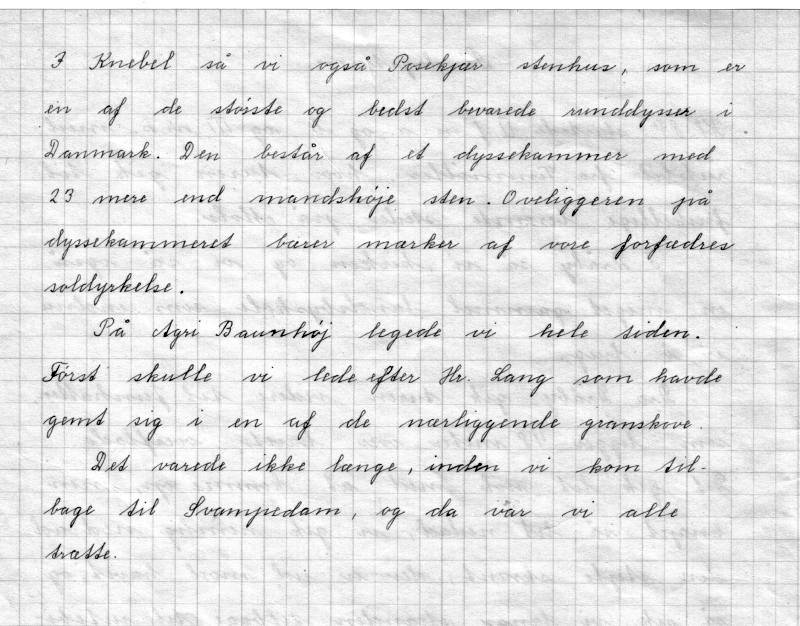 I Knebel så vi også Posekjær stenhus, som er
en af de største og bedst bevarede runddysser i
Danmark. Den består af et dyssekammer med
23 mere end mandshøje sten. Oveliggeren på
dyssekammeret bærer mærker af vore forfædres
soldyrkelse.
På Agri Baunhøj legede vi hele tiden.
Først skulle vi lede efter Hr. Lang som havde
gemt sig i en af de nærliggende granskove.
Det varede ikke længe, inden vi kom til-
bage til Svampedam, og da var vi alle
trætte.